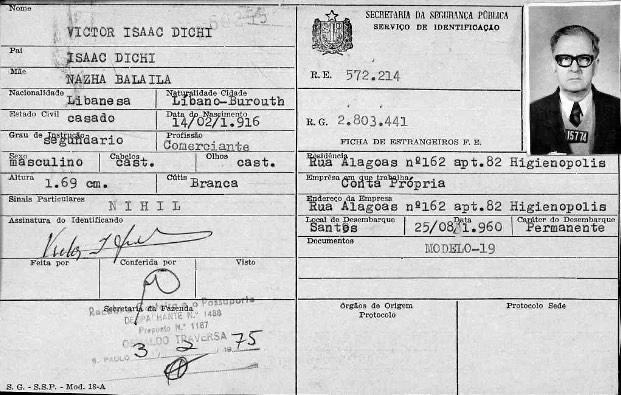 Nome
VICTOR ISAAC DICHI
Pai
ISAAC DICHI
Mãe
NAZHA BALAILA
Nacionalidade
Naturalidade Cidade
Libanesa
Líbano-Burouth
Estado Civil
Data do Nascimento
casado
14/02/1.916
Grau de Instrução
Profissão
segundario
Comerciante
Sexo
Cabelos
Olhos
masculino
cast.
cast.
Altura
Cútis
1.69 cm.
Branca
Sinais Particulares
NIHIL
Assinatura do Identificando
Feita por
Conferida por
Visto
Secretaria da Fazenda
DESPACHANTE N.º 1488
Preposto N.º 1187
OSVALDO TRAVERSA
S. PAULO 3 2 1975
S. G. - S.S.P. - Mod. 18-A
SECRETARIA DA SEGURANÇA PÚBLICA
SERVIÇO DE IDENTIFICAÇÃO
R. E. 572.214
R. G. 2.803.441
FICHA DE ESTRANGEIROS F. E.
15774
Residência
Rua Alagoas nº162 apt.82 Higienopolis
Emprêsa em que trabalha
Conta Própria
Endereço da Emprêsa
Rua Alagoas nº162 apt.82 Higienopolis
Local de Desembarque
Data
Caráter do Desembarque
Santos
25/08/1.960
Permanente
Documentos
MODELO-19
Órgãos de Origem
Protocolo
Protocolo Sede